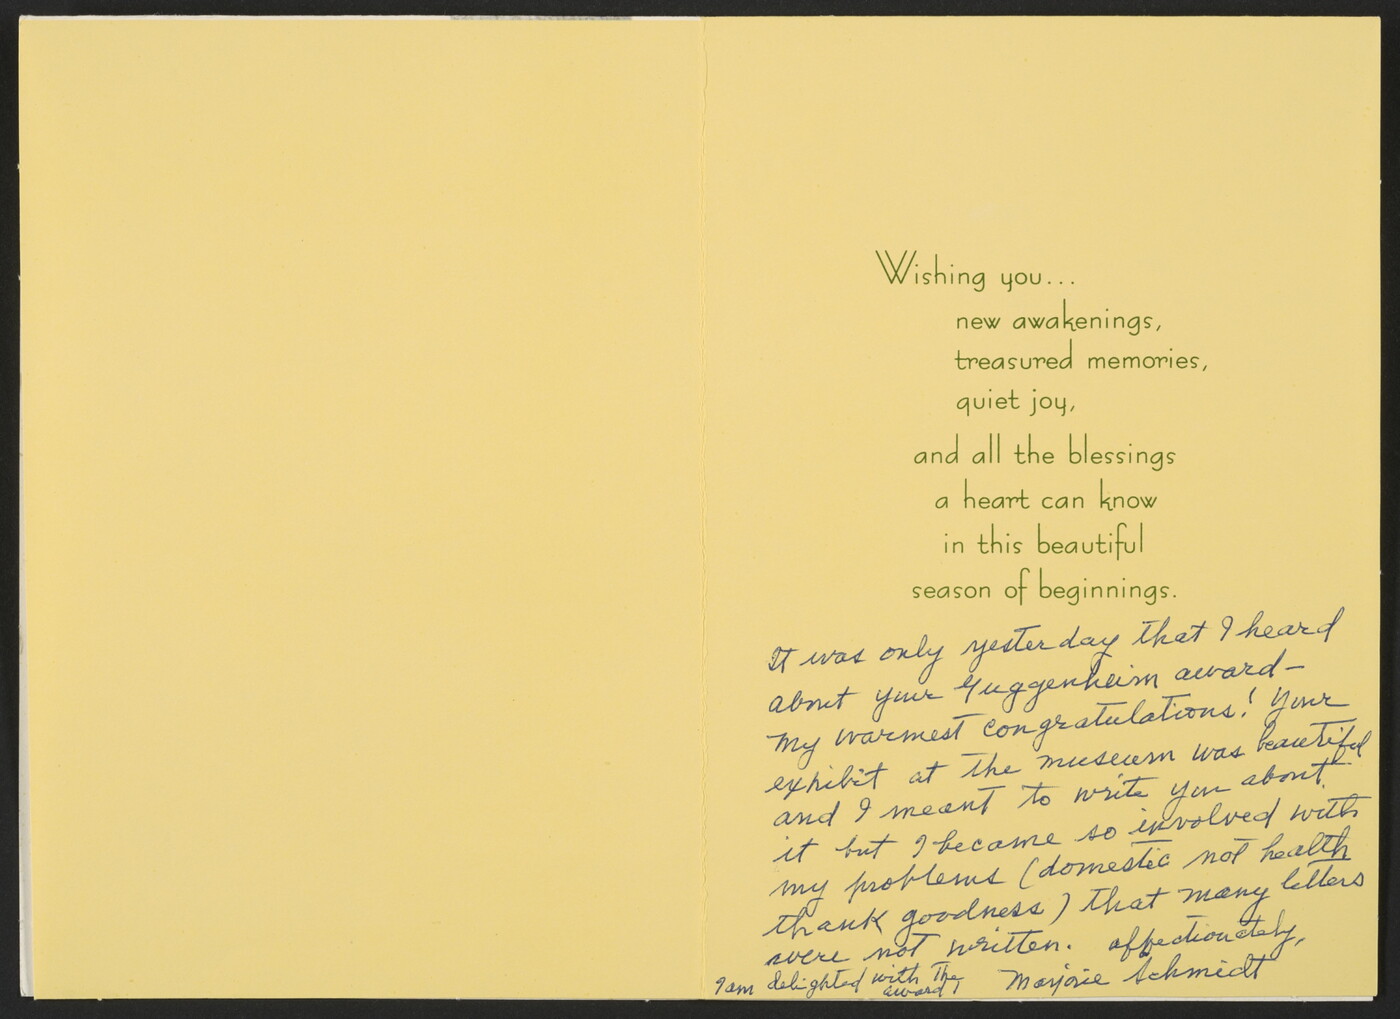 Wishing you...
new awakenings,
treasured memories,
quiet joy,
and all the blessings
a heart can know
in this beautiful
season of beginnings.
It was only yesterday that I heard
about your Guggenheim award—
My warmest congratulations! Your
exhibit at the museum was beautiful
and I meant to write you about
it but I became so involved with
my problems (domestic not health
thank goodness) that many letters
were not written. Affectionately,
Marjorie Schmidt
I am delighted with the
award!